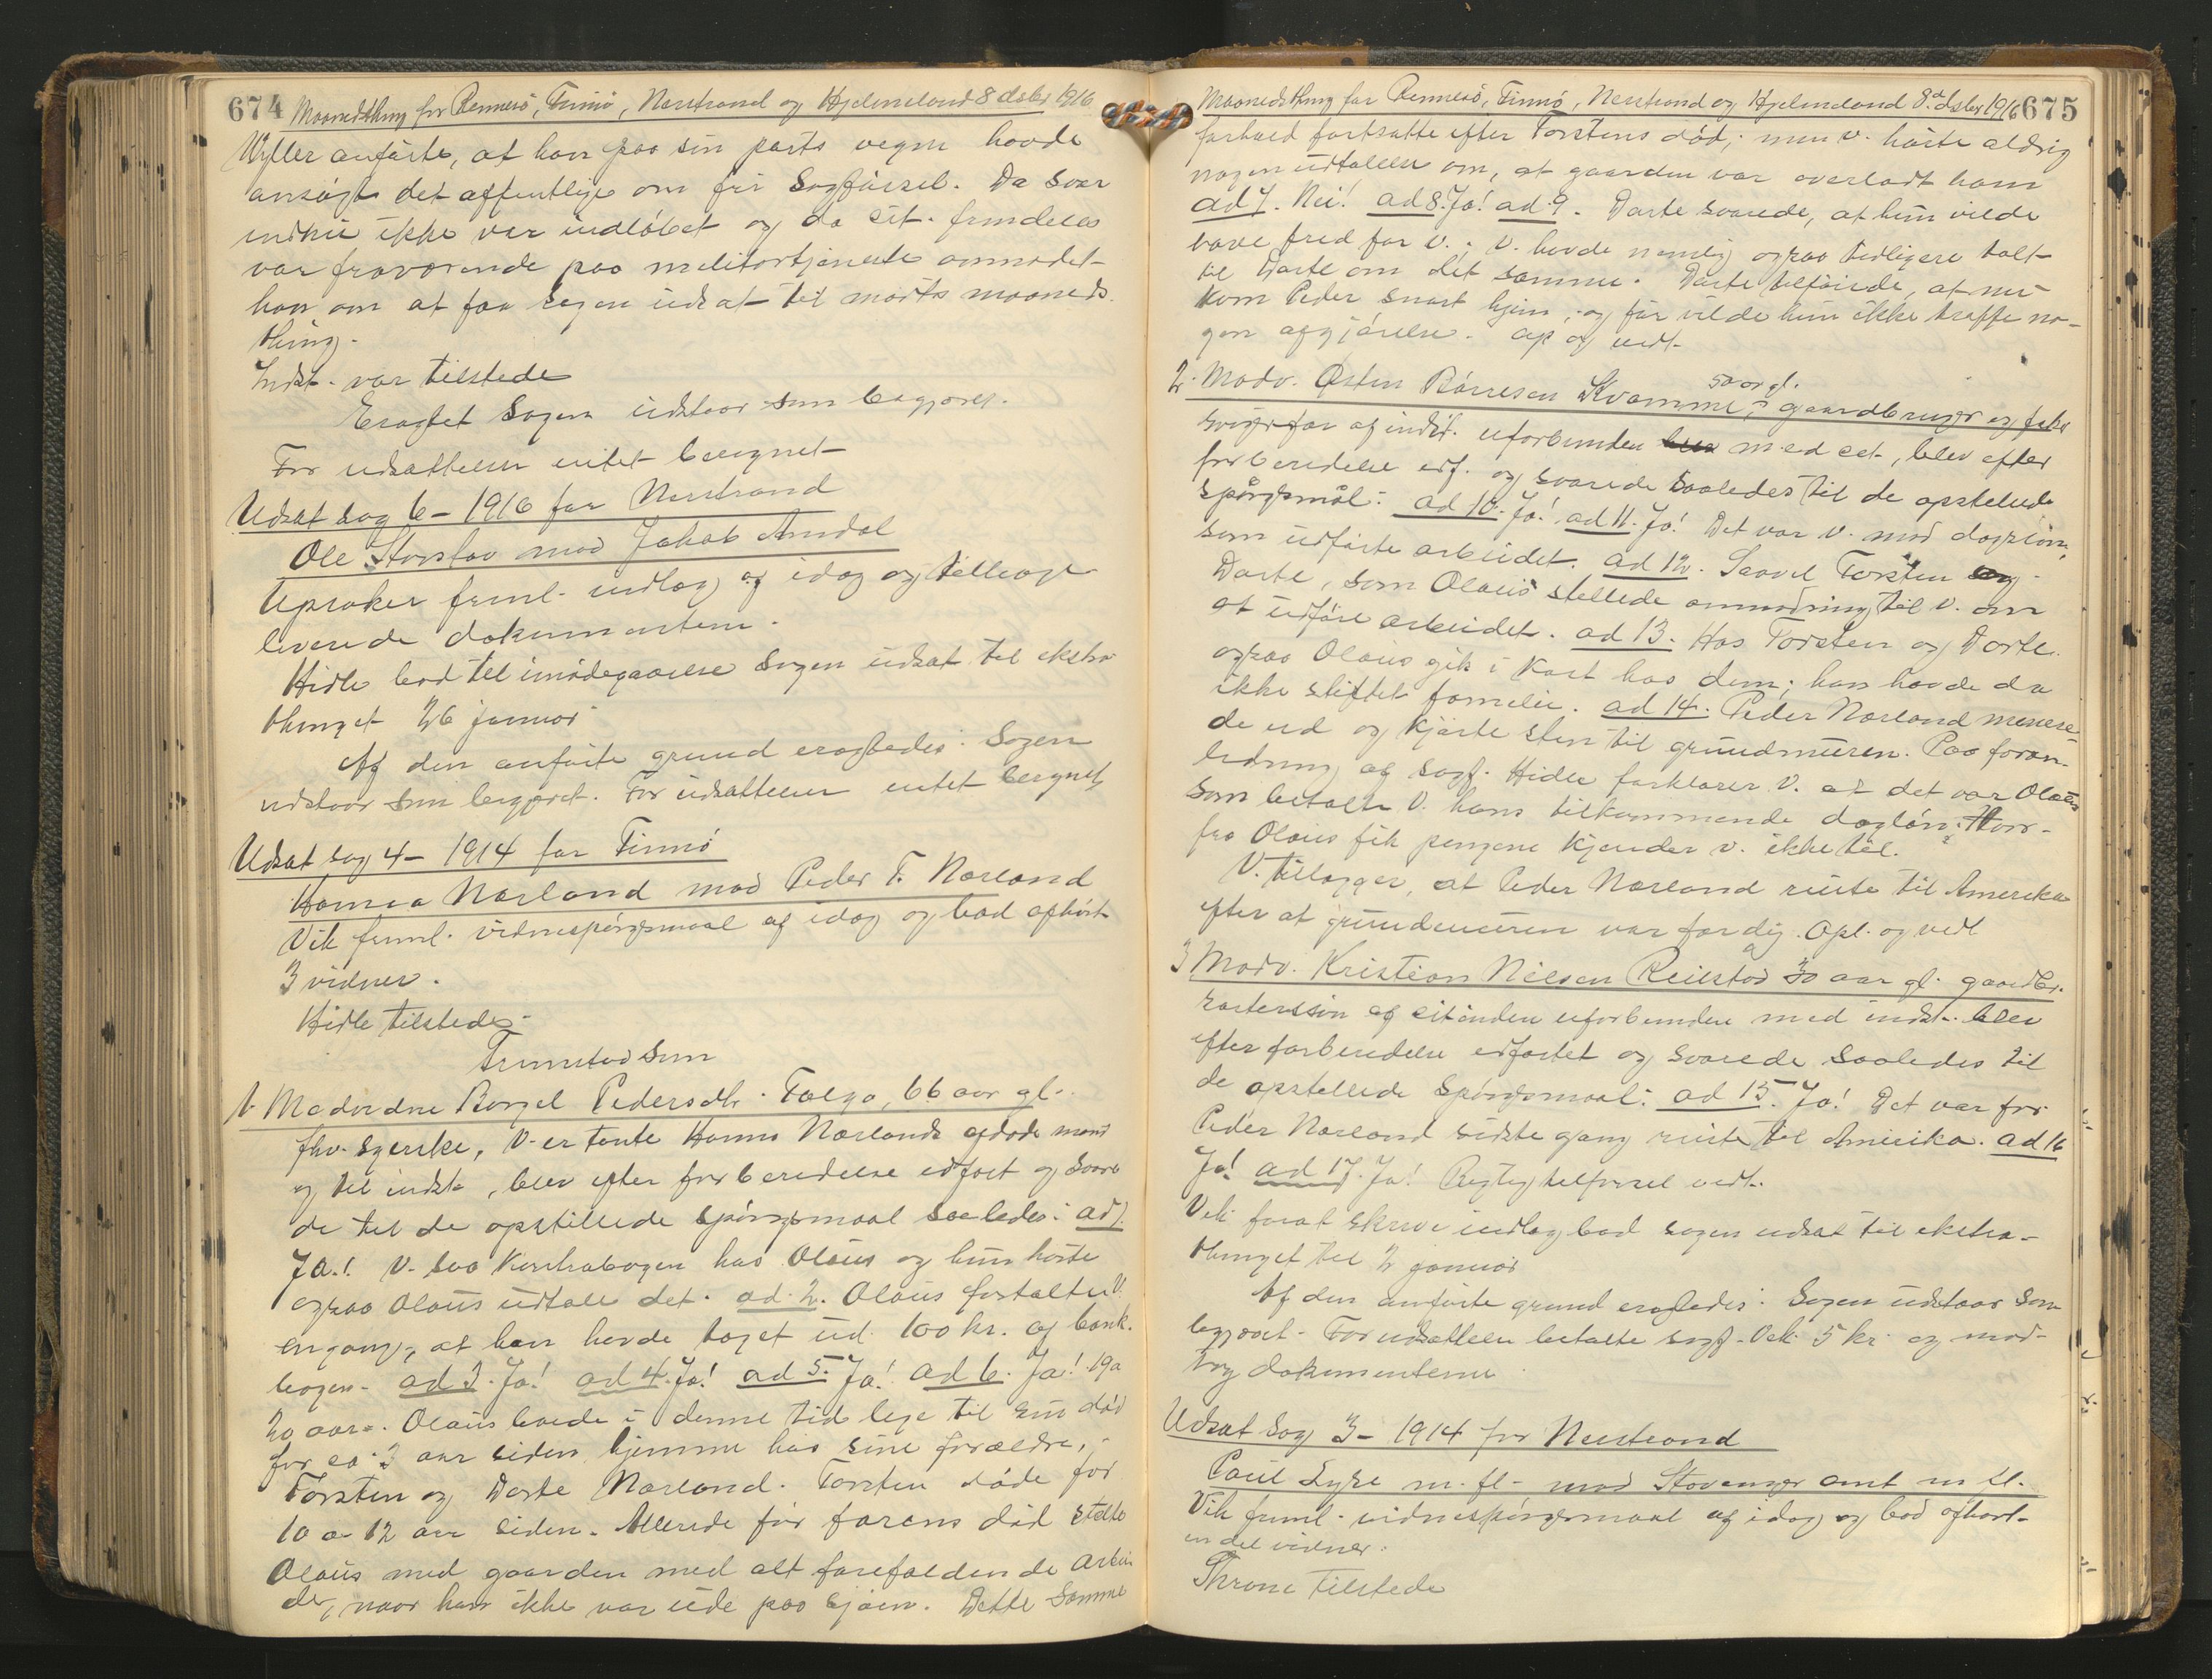 674 Maanedsthing for Rennesø, Finnø, Nerstrand og Hjelmeland 8 dsbr 1916
Wyller anførte, at han paa sin parts vegne havde
ansøgt det offentlige om fri sagførsel. Da svar
endnu ikke var indløbet og da cit. fremdeles
var fraværende paa militærtjeneste anmodet
han om at faa sagen udsat til marts maaneds
thing.
Indst. var tilstede
Eragtet Sagen udstaar som begjæret.
For udsættelsen intet beregnet
Udsat sag 6 - 1916 for Nerstrand
Ole Storstav mod Jakob Amdal
Upraker freml. indlæg af idag og tilbage
leverede dokumenterne.
Hidle bad til imødegaaelse sagen udsat til ekstra
thinget 26 januar
Af den anførte grund eragtedes: Sagen
udstaar som begjæret. For udsættelsen intet beregnet
Udsat sag 4 - 1914 for Finnø
Hanna Nærland mod Peder T. Nærland
Vik freml. vidnespørgsmaal af idag og bad afhørt
3 vidner.
Hidle tilstede.
Fremstod som
1. Modv dne Borgel Pedersdtr. Talgø, 66 aar gl.
fhv. syerske, V. er tante Hanna Nærlands afdøde mand
og til indst., blev efter forberedelse edfæst og svare
de til de opstillede spørgsmaal saaledes: ad 1.
Ja! V. saa Kontrabogen hos Olaus og hun hørte
ogsaa Olaus udtale det. ad. 2. Olaus fortalte V.
engang, at han havde taget ud 100 kr. af bank.
bogen. ad 3. Ja! ad 4. Ja! ad 5. Ja! ad 6. Ja! 19 a
20 aar. Olaus levede i denne tid lige til sin død
for ca 3 aar siden hjemme hos sine forældre,
Torsten og Dorte Nærland. Torsten døde for
10 a 12 aar siden. Allerede før farens død stelte
Olaus med gaarden med alt forefaldende arbei
de, naar han ikke var ude paa sjøen. Dette samme
Maanedsthing for Rennesø, Finnø, Nerstrand og Hjelmeland 8. dsbr 1916 675
forhold fortsatte efter Torstens død; men v. hørte aldrig
nogen udtalelse om, at gaarden var overladt ham
ad 7. Nei! ad 8. Ja! ad 9. Dorte svarede, at hun vilde
have fred for v.; v. havde nemlig ogsaa tidligere talt
til Dorte om det samme. Dorte tilføiede, at nu
kom Peder snart hjem, og før vilde hun ikke træffe no-
gen afgjørelse. Op og vedt.
2. Modv. Østen Børresen Kvamme, 50 aar gl. gaardbruger og fisker
svigerfar af indst. uforbunden med cit, blev efter
forberedelse edf. og svarede saaledes til de opstillede
spørgsmål: ad 10. Ja! ad 11. Ja! Det var v. mod dagløn,
som udførte arbeidet. ad 12. Saavel Torsten og
Dorte, som Olaus stellede anmodning til v. om
at udføre arbeidet. ad 13. Hos Torsten og Dorte.
ogsaa Olaus gik i kost hos dem; han havde da
ikke stiftet familie. ad 14. Peder Nærland minere-
de ud og kjørte sten til grundmuren. Paa foran-
ledning af sagf. Hidle forklarer V. at det var Olaus
som betalte V. hans tilkommende dagløn. Hvor-
fra Olaus fik pengene kjender v. ikke til.
V. tillægger, at Peder Nærland reiste til Amerika
efter at grundmuren var færdig. Opl. og vedt
3 Modv. Kristian Nilsen Reilstad 30 aar gl. gaardbr.
søstersøn af citanten uforbunden med indst. blev
efter forberedelse edfæstet og svarede saaledes til
de opstillede spørgsmaal: ad 15. Ja! Det var før
Peder Nærland sidste gang reiste til Amerika. ad 16
Ja! ad 17. Ja! Rigtig tilførsel vedt.
Vik forat skrive indlæg bad sagen udsat til ekstra-
thinget til 2 januar
Af den anførte grund eragtedes: Sagen udstaar som
begjæret. For udsættelsen betalte sagf. Vik 5 kr. og mod-
tog dokumenterne
Udsat sag 3 - 1914 for Nerstrand
Paul Lyse m. fl. mod Stavanger amt m fl.
Vik freml. vidnespørgsmaal af idag og bad afhørt
en del vidner.
Throne tilstede